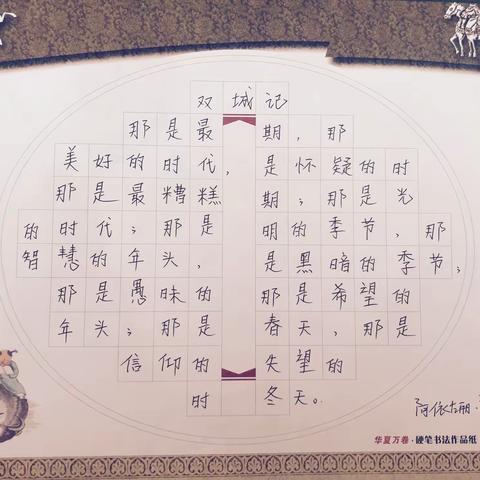 双城记
那是最
美好的时代,
那是最糟糕
的时代;那是
智慧的年头,
那是愚昧的
年头;那是
信仰的
时
期,那
是怀疑的时
期;那是光
明的季节,那
是黑暗的季节;
那是希望的
春天,那是
失望的
冬天。
阿依古丽
华夏万卷·硬笔书法作品纸